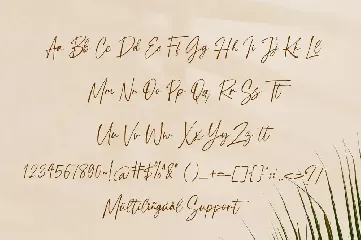 Aa Bb Cc Dd Ee Ff Gg Hh Ii Jj Kk Ll
Mm Nn Oo Pp Qq Rr Ss Tt
Uu Vv Ww Xx Yy Zz
1234567890
Multilingual Support